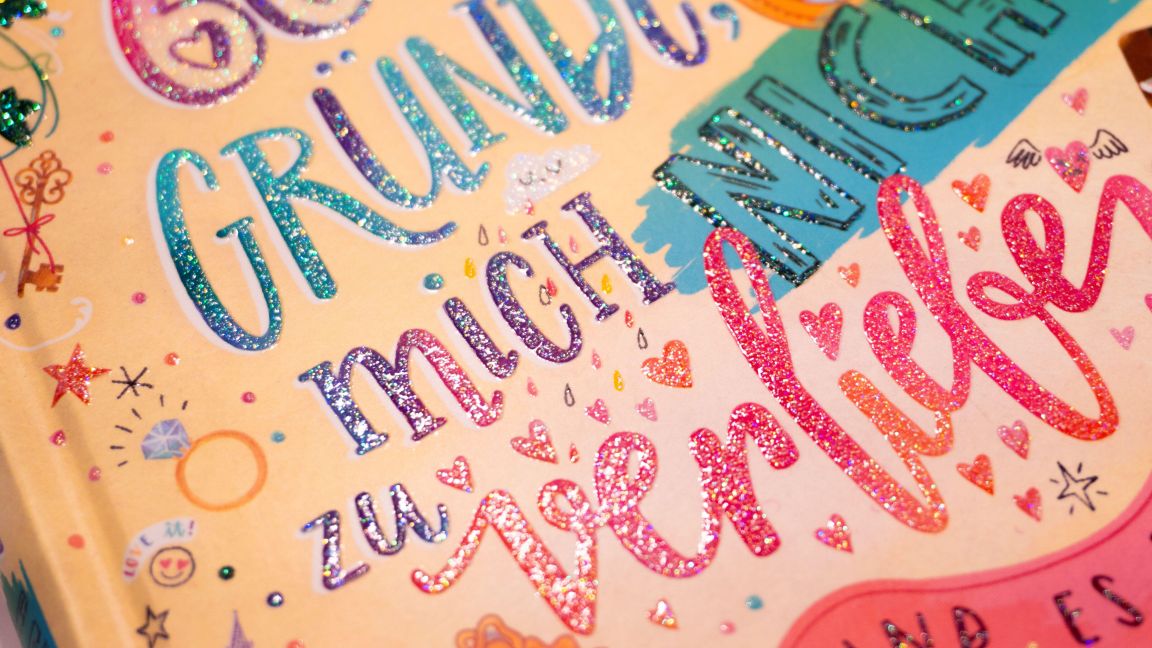 GRÜNDE,
MICH NICHT
zu verlieben
LOVE it!
UND ES